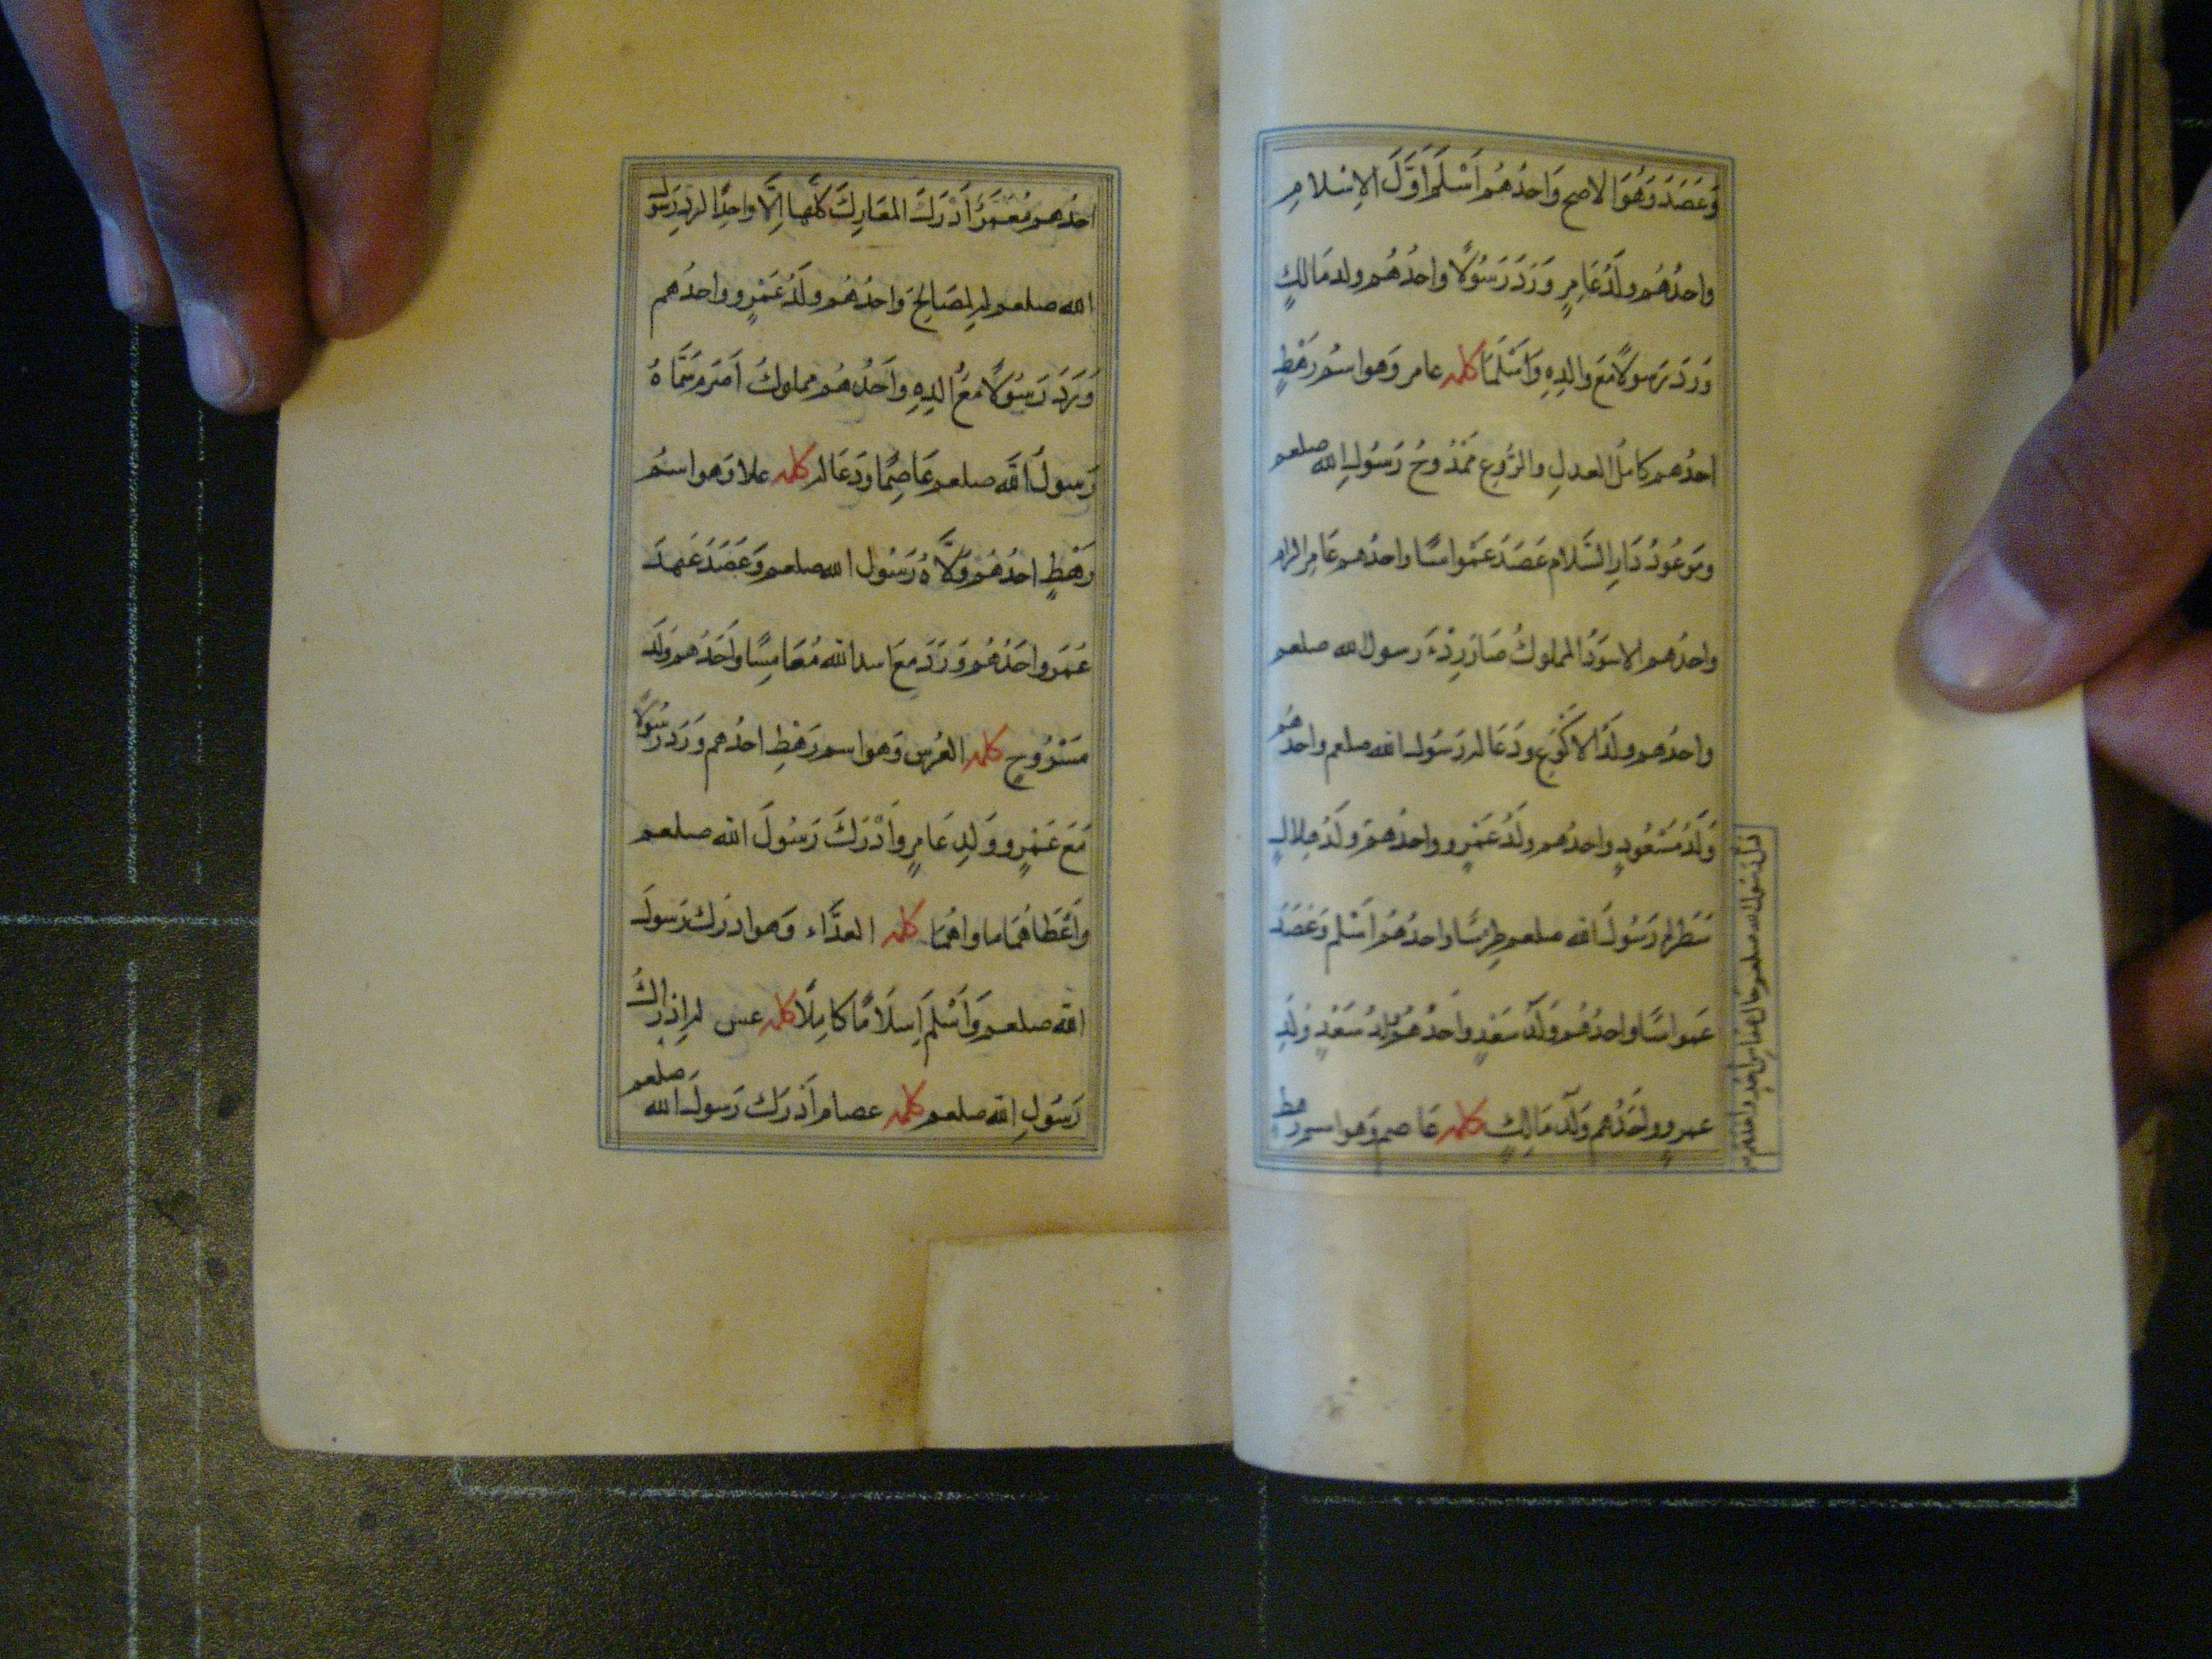 وَعَصَدَ وَهُوَ الاصح وَاحدُهُم اَسْلَمَ اَوَّلَ الاِسْلامِ
واحدُهُم ولَدُ عَامِرٍ وَرَدَ رَسُولًا واحدُهُم ولد مَالكٍ
وَرَدَ رَسولًا مَعَ والدِهِ وَاَسْلَمَا كلمه عامر وَهو اسمُ رَهْطٍ
احدُهم كاملُ العدلِ والرَّوعِ مَمْدُوحُ رَسُولِ الله صلعم
ومَوعُودُ دَارِ السَّلام عَصَدَ عَمواسًا واحدُهم عَامِر الرام
واحدُهم الاسوَدُ المملوكُ صَارَ رِدْءَ رسول الله صلعم
واحدُهم ولَدُ الاكْوَعِ ودَعَا له رَسُول الله صلعم واحدهُم
وَلَدُ مَسْعُودٍ واحدُهم ولَدُ عَمْرٍو واحدُهم ولَدُ هِلالٍ
سَطَرَ له رَسُولُ الله صلعم طِرسًا واحدُهُم اَسْلم وَعَصَدَ
عمواسًا واحدُهُم وَلَدُ سَعْدٍ واَحدُهُم ولدُ سَعْدٍ وَلَدِ
عمرٍو واَحَدُهم وَلَدُ مَالكٍ كلمه عَاصم وَهو اسم رَهط
احدُهم مُعَمَّرٌ اَدْرَكَ المعَارِكَ كُلَّها اِلَّا واحِدًا لردِ رَسُول
الله صلعم له لِمصَالِحَ وَاحدُهُم ولَدُ عَمْرٍو واحدُهم
وَرَدَ رَسُولًا مَعَ والدِهِ واَحدُهُم مملوكُ اَصرم سَمَّاهُ
رَسولُ الله صلعم عَاصِمًا ودَعَا له كلمه علا وَهو اسمُ
رَهْطٍ احدُهُم وَلَّاهُ رَسُول الله صلعم وَعَصَدَ عَهدَ
عُمَر واحَدُهُم وَرَدَ مَعَ اسد الله مُعَامِسًا واَحَدُهم ولَدُ
مَسْرُوحٍ كلمه العُرس وَهو اسم رَهْطِ احدُهم وَرَدَ رَسُولًا
مَعَ عَمْرٍو وَلَدِ عَامِرٍ واَدْرَكَ رَسُولَ الله صلعم
وَاَعْطَاهُمَا ما واهُما كلمه العدَّاء وَهو ادرَك رَسولَ
الله صلعم وَاَسْلَمَ اِسلَامًا كامِلًا كلمه عس له اِدْرَاكُ
رَسُولِ الله صلعم كلمه عصام اَدْرَك رَسولَ الله صلعم